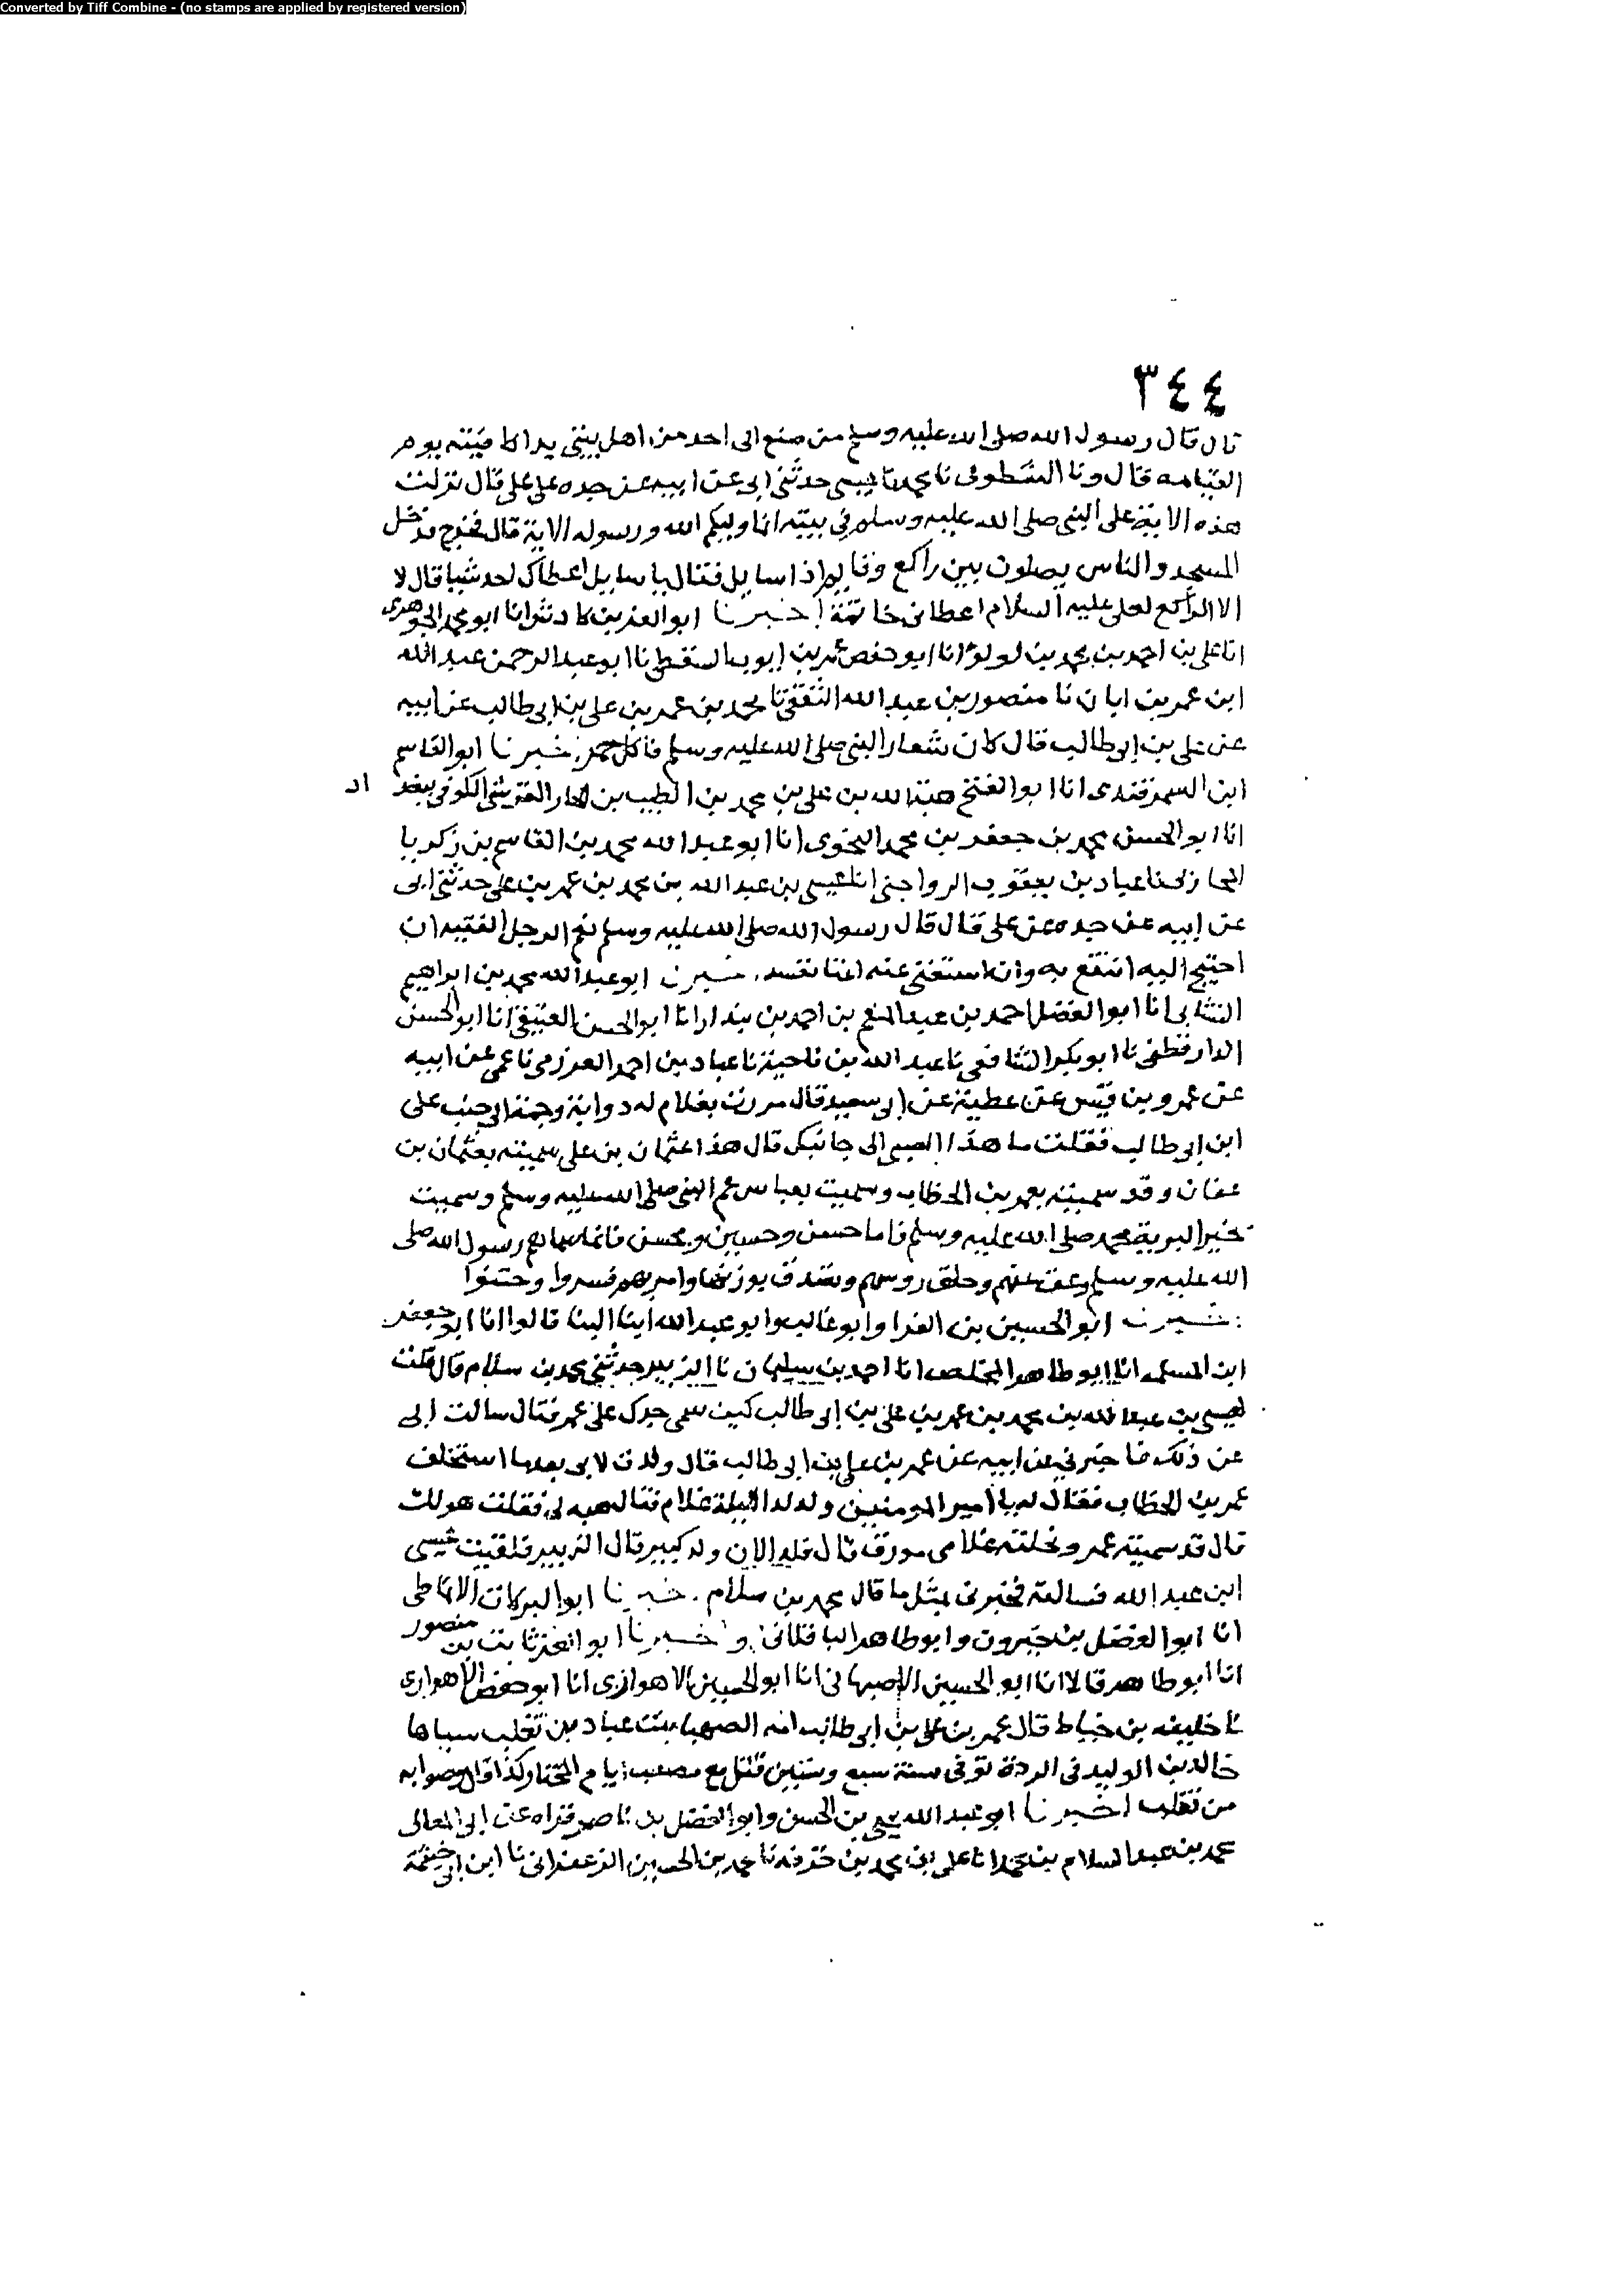 Converted by Tiff Combine - (no stamps are applied by registered version)
٣٤٤
قال قال رسول الله صلى الله عليه وسلم من صنع الى احد من اهل بيتى يدا كافيته يوم
القيامه قال ونا الشطوى نا محمد نا عيسى حدثنى ابى عن ابيه عن جده على على قال نزلت
هذه الاية على النبى صلى الله عليه وسلم فى بيته انما وليكم الله ورسوله الاية قال فخرج فدخل
المسجد والناس يصلون بين راكع وقايم اذا سايل فقال يا سايل اعطاك احد شيا قال لا
الا الراكع لعلى عليه السلام اعطانى خاتمة اخبرنا ابو العز بن كادش انا ابو محمد الجوهرى
انا على بن احمد بن محمد بن لولوا انا ابو حفص عمر بن ايوب السقطى نا ابو عبد الرحمن عبد الله
ابن عمر بن ابان نا منصور بن عبد الله الثقفى نا محمد بن عمر بن على بن ابى طالب عن ابيه
عن على بن ابى طالب قال كان شعار النبى صلى الله عليه وسلم خبرنا ابو القاسم
ابن السمرقندى انا ابو الفتح هبة الله بن على بن محمد بن الطيب بن الجار القرشى الكوفى ببغداد
انا ابو الحسن محمد بن جعفر بن محمد النحوى انا ابو عبد الله محمد بن القاسم بن زكريا
المحاربى نا عباد بن يعقوب الرواجنى انا عيسى بن عبد الله بن محمد بن عمر بن على حدثنى ابى
عن ابيه عن جده عن على قال قال رسول الله صلى الله عليه وسلم نعم الرجل الفقيه ان
احتيج اليه انتفع به وان استغنى عنه اغنا نفسه. خبرنا ابو عبد الله محمد بن ابراهيم
النشابى انا ابو الفضل احمد بن عبد المنعم بن احمد بن بندار انا ابو الحسن العتيقى انا ابو الحسن
الدارقطنى نا ابو بكر الشافعى نا عبد الله بن ناجية نا عباد بن احمد العرزمى نا عمى عن ابيه
عن عمرو بن قيس عن عطية عن ابى سعيد قال مررت بغلام له دوابة وجمة الى جنب على
ابن ابى طالب فقلت ما هذا الصبى الى جانبك قال هذا عثمان بن على سميته بعثمان بن
عفان وقد سميته بعمر بن الخطاب وسميت بعباس عم النبى صلى الله عليه وسلم وسميت
بخير البرية محمد صلى الله عليه وسلم فاما حسن وحسين ومحسن فانما سماهم رسول الله صلى
الله عليه وسلم وعق عنهم وحلق روسهم وتصدق بوزنها وامر بهم فسروا وختنوا
خبرنا ابو الحسين بن الفرا وابو غالب وابو عبد الله ابنا البنا قالوا انا ابو جعفر
ابن المسلمه انا ابو طاهر المخلص انا احمد بن سليمان نا الزبير حدثنى محمد بن سلام قال قلت
لعيسى بن عبد الله بن محمد بن عمر بن على بن ابى طالب كيف سمى جدك على عمر فقال سالت ابى
عن ذلك فاخبرنى عن ابيه عن عمر بن على بن ابى طالب قال ولدت لابى بعدما استخلف
عمر بن الخطاب فقال له يا امير المومنين ولد لى الليلة غلام فقال هبه لى فقلت هو لك
قال قد سميته عمر ونحلته غلامى مورق قال فله الان ولد كبير قال الزبير فلقيت عيسى
ابن عبد الله فسالته فخبرنى بمثل ما قال محمد بن سلام. خبرنا ابو البركات الانماطى
انا ابو الفضل بن خيرون وابو طاهر الباقلانى و خبرنا ابو العز ثابت بن منصور
انا ابو طاهر قالا انا ابو الحسين الاصبهانى انا ابو الحسين الاهوازى انا ابو حفص الاهوازى
نا خليفه بن خياط قال عمر بن على بن ابى طالب امه الصهبا بنت عباد من تغلب سباها
خالد بن الوليد فى الردة توفى سنة سبع وستين قتل مع مصعب ايام المختار كذا قال وصوابه
من تغلب اخبرنا ابو عبد الله يحيى بن الحسن وابو الفضل بن ناصر قراه عن ابى المعالى
محمد بن عبد السلام بن محمد انا على بن محمد بن خزفه نا محمد بن الحسين الزعفرانى نا ابن ابى خيثمة